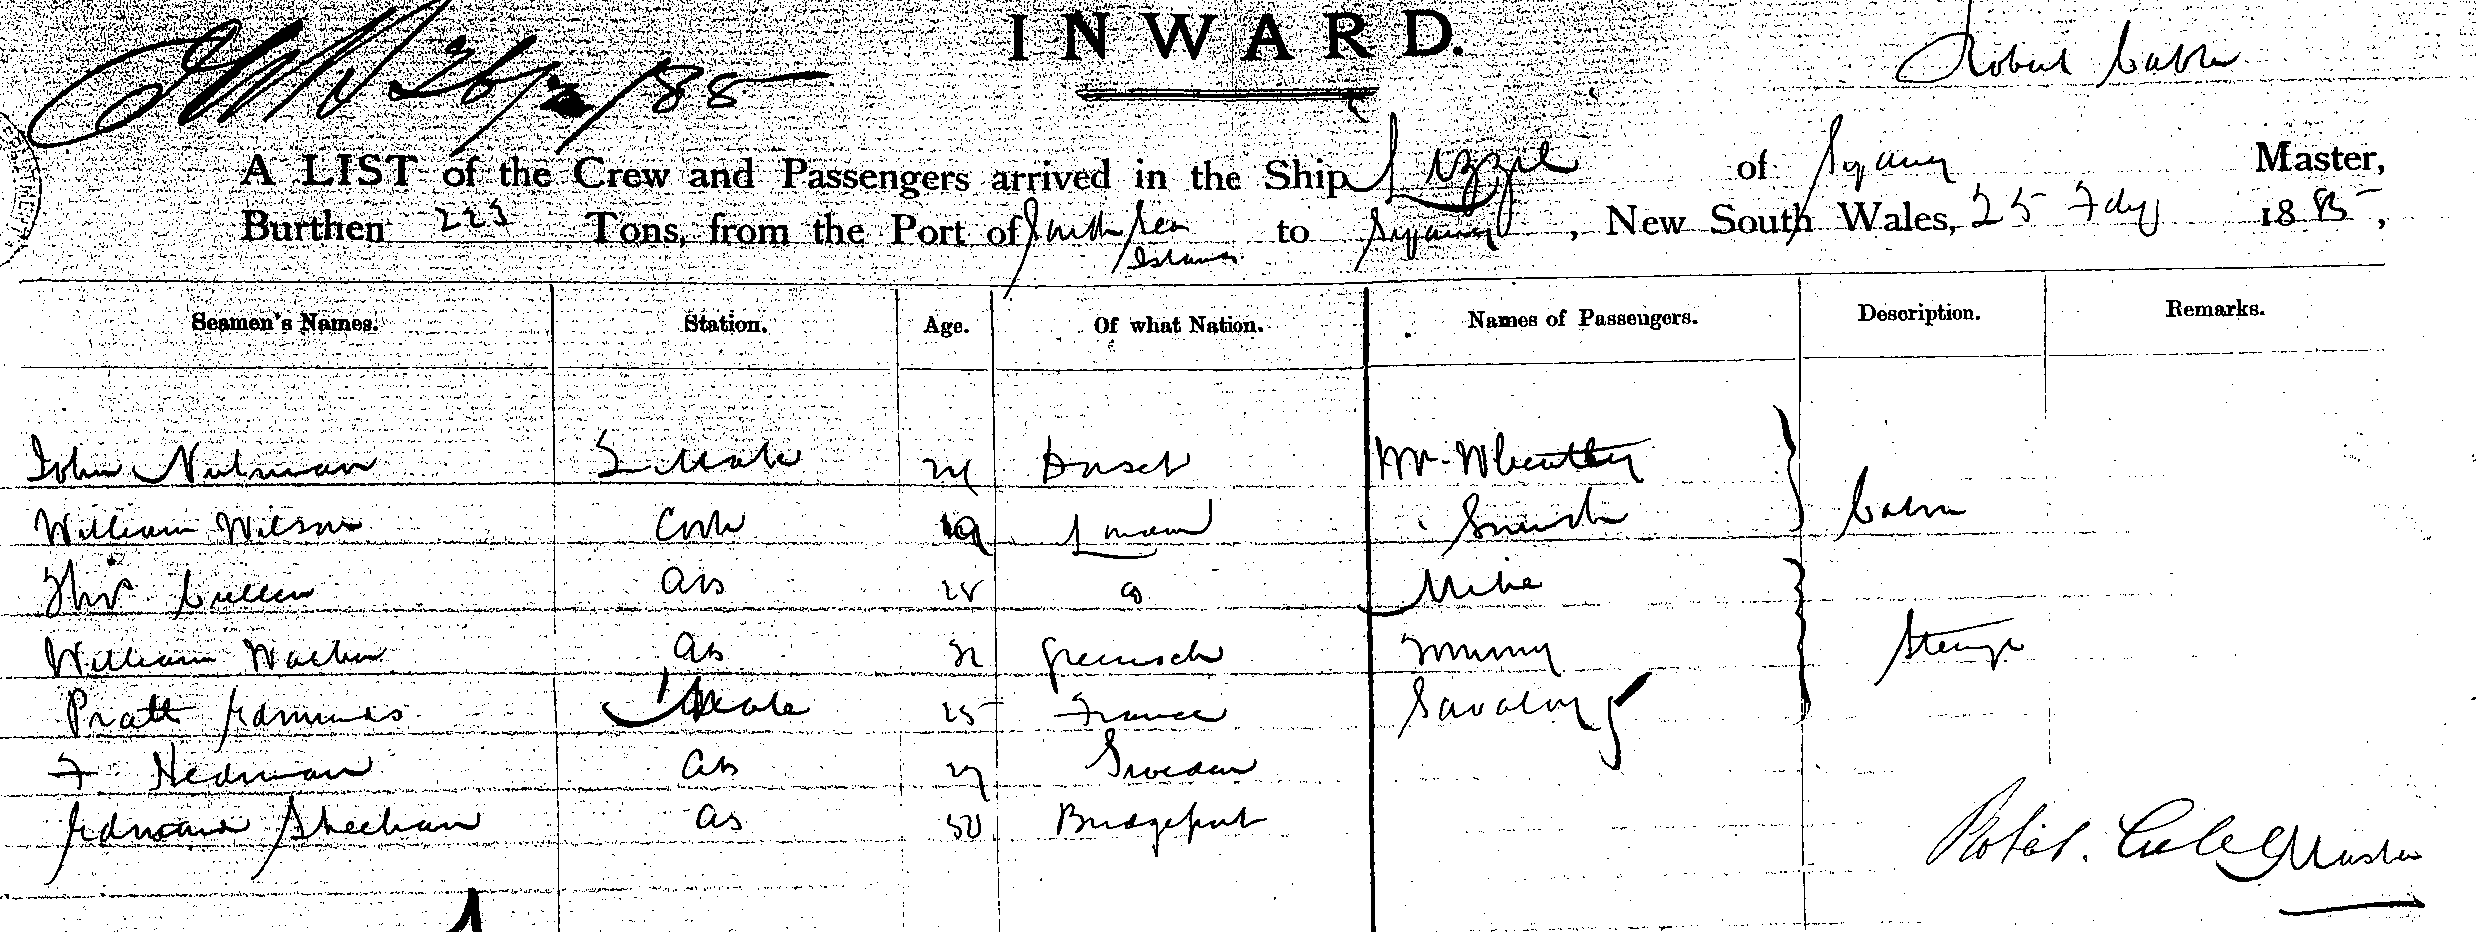 26/2/85
INWARD.
Robert
A LIST of the Crew and Passengers arrived in the Ship Lizzie of Sydney Master,
Burthen 223 Tons, from the Port of South Sea Islands to Sydney, New South Wales, 25 Feby 1885,
Seamen's Names. Station. Age. Of what Nation. Names of Passengers. Description. Remarks.
John 2 Mate 24 Dorset Mr. Wheatley
William Wilson Cook 19 London Smith Cabin
Thos Cullen AB 28 Do Mike
William AB Greenwich Tommy Steerge
Pratt Edmunds 1 Mate 25 France
F Hedman AB 27 Sweden
Edward Sheehan AB 50 Bridgeport
Robt. Master